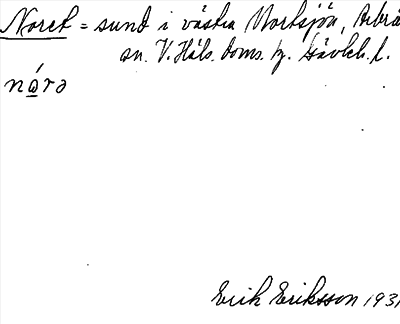 Noret = sund i västra Norrsjön, Arbrå
sn. V. Häls. doms. hg. Gävleb. l.
nórə
Erik Eriksson 1931